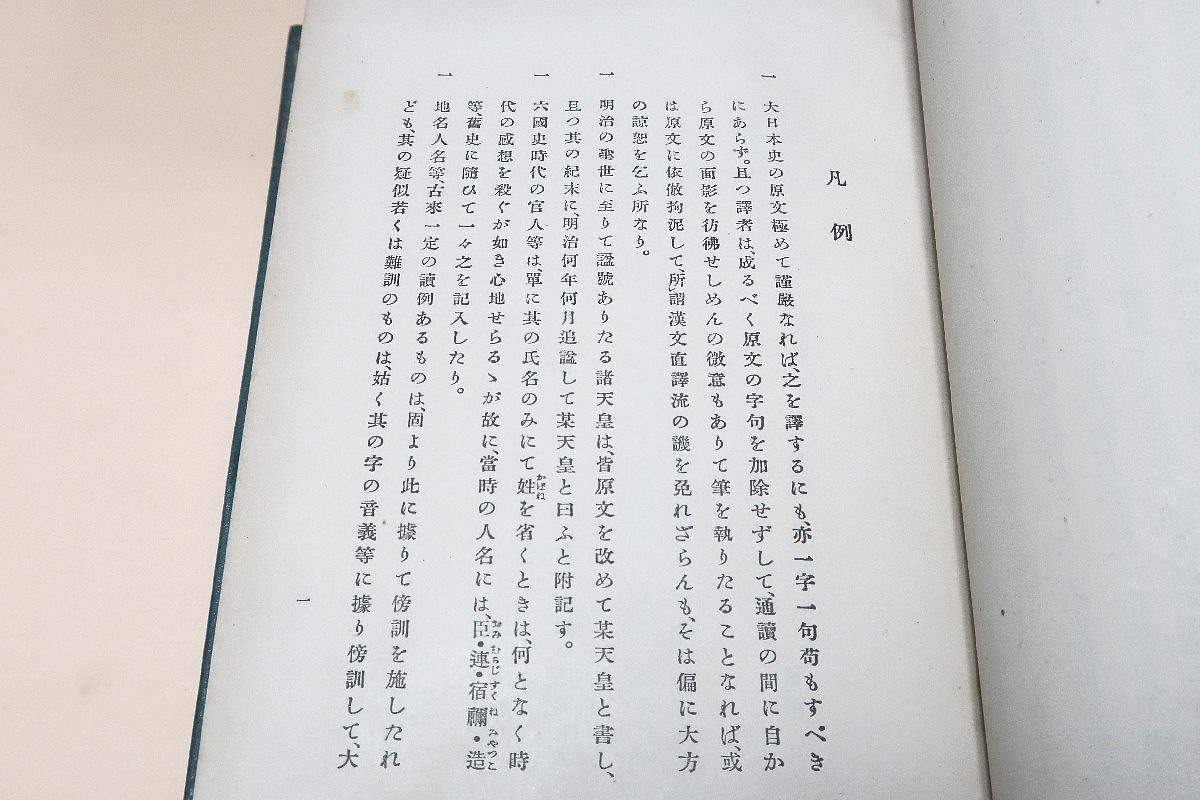 凡例
一 大日本史の原文極めて謹嚴なれば、之を譯するにも、亦一字一句苟もすべき
にあらず。且つ譯者は、成るべく原文の字句を加除せずして、通讀の間に自か
ら原文の面影を彷彿せしめんの微意もありて筆を執りたることなれば、或
は原文に依倣拘泥して、所謂漢文直譯流の譏を免れざらんも、そは偏に大方
の諒恕を乞ふ所なり。
一 明治の聖世に至りて諡號ありたる諸天皇は、皆原文を改めて某天皇と書し、
且つ其の紀末に、明治何年何月追諡して某天皇と曰ふと附記す。
一 六國史時代の官人等は、單に其の氏名のみにて姓を省くときは、何となく時
かばね
代の感想を殺ぐが如き心地せらるゝが故に、當時の人名には、臣・連・宿禰・造
おみ むらじ すくね みやつこ
等、舊史に隨ひて一々之を記入したり。
一 地名人名等、古來一定の讀例あるものは、固より此に據りて傍訓を施したれ
ども、其の疑似若くは難訓のものは、姑く其の字の音義等に據り傍訓して、大
一